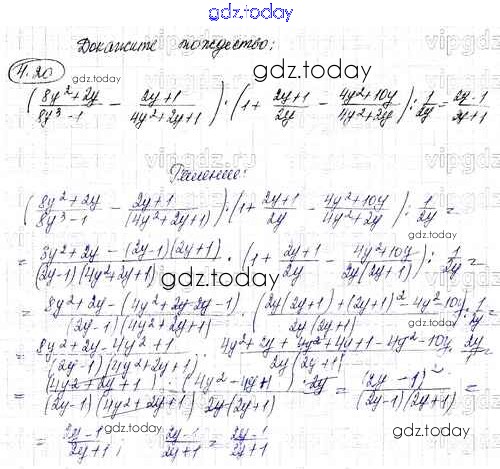 gdz.today
Докажите тождество:
4.20
gdz.today
(8y²+2y / 8y³-1 - 2y+1 / 4y²+2y+1) : (1 + 2y+1 / 2y - 4y²+10y / 4y²+2y) : 1 / 2y = 2y-1 / 2y+1
Решение:
(8y²+2y / 8y³-1 - 2y+1 / (4y²+2y+1)) : (1 + 2y+1 / 2y - 4y²+10y / 4y²+2y) : 1 / 2y =
= 8y²+2y-(2y-1)(2y+1) / (2y-1)(4y²+2y+1) : (1 + 2y+1 / 2y - 4y²+10y / 2y(2y+1)) : 1 / 2y =
gdz.today
= 8y²+2y-(4y²+2y-2y-1) / (2y-1)(4y²+2y+1) : (2y(2y+1)+(2y+1)²-4y²-10y / 2y(2y+1)) : 1 / 2y =
= 8y²+2y-4y²+1 / (2y-1)(4y²+2y+1) : 4y²+2y+4y²+4y+1-4y²-10y / 2y(2y+1) · 2y / 1 =
= (4y²+2y+1) / (2y-1)(4y²+2y+1) · (4y²-4y+1) / 2y(2y+1) · 2y = (2y-1)² / (2y-1)(2y+1) =
= 2y-1 / 2y+1 ; 2y-1 / 2y+1 = 2y-1 / 2y+1
gdz.today